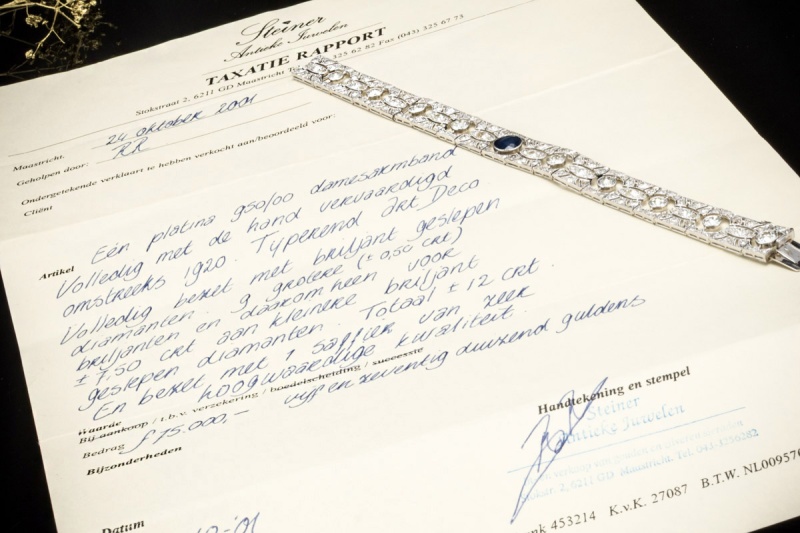 Steiner
Antieke Juwelen
TAXATIE RAPPORT
Stokstraat 2, 6211 GD Maastricht Te 325 62 82 Fax (043) 325 67 73
Maastricht, 24 oktober 2001
Geholpen door: RR
Ondergetekende verklaart te hebben verkocht aan/beoordeeld voor:
Cliënt
Artikel Eén platina 950/00 damesarmband
Volledig met de hand vervaardigd
omstreeks 1920. Typerend Art Deco
Volledig bezet met briljant geslepen
diamanten. 9 grotere (± 0,50 crt)
briljanten en daaromheen voor
± 7,50 crt aan kleinere briljant
geslepen diamanten. Totaal ± 12 crt.
En bezet met 1 saffier van zeer
hoogwaardige kwaliteit.
Waarde
Bij aankoop / t.b.v. verzekering / boedelscheiding / successie
Bedrag f 75.000,- vijf en zeventig duizend guldens
Bijzonderheden
Handtekening en stempel
Steiner
Antieke Juwelen
2, 6211 GD Maastricht, Tel. 043-3256282
Datum
-'01
nk 453214 K.v.K. 27087 B.T.W. NL009576